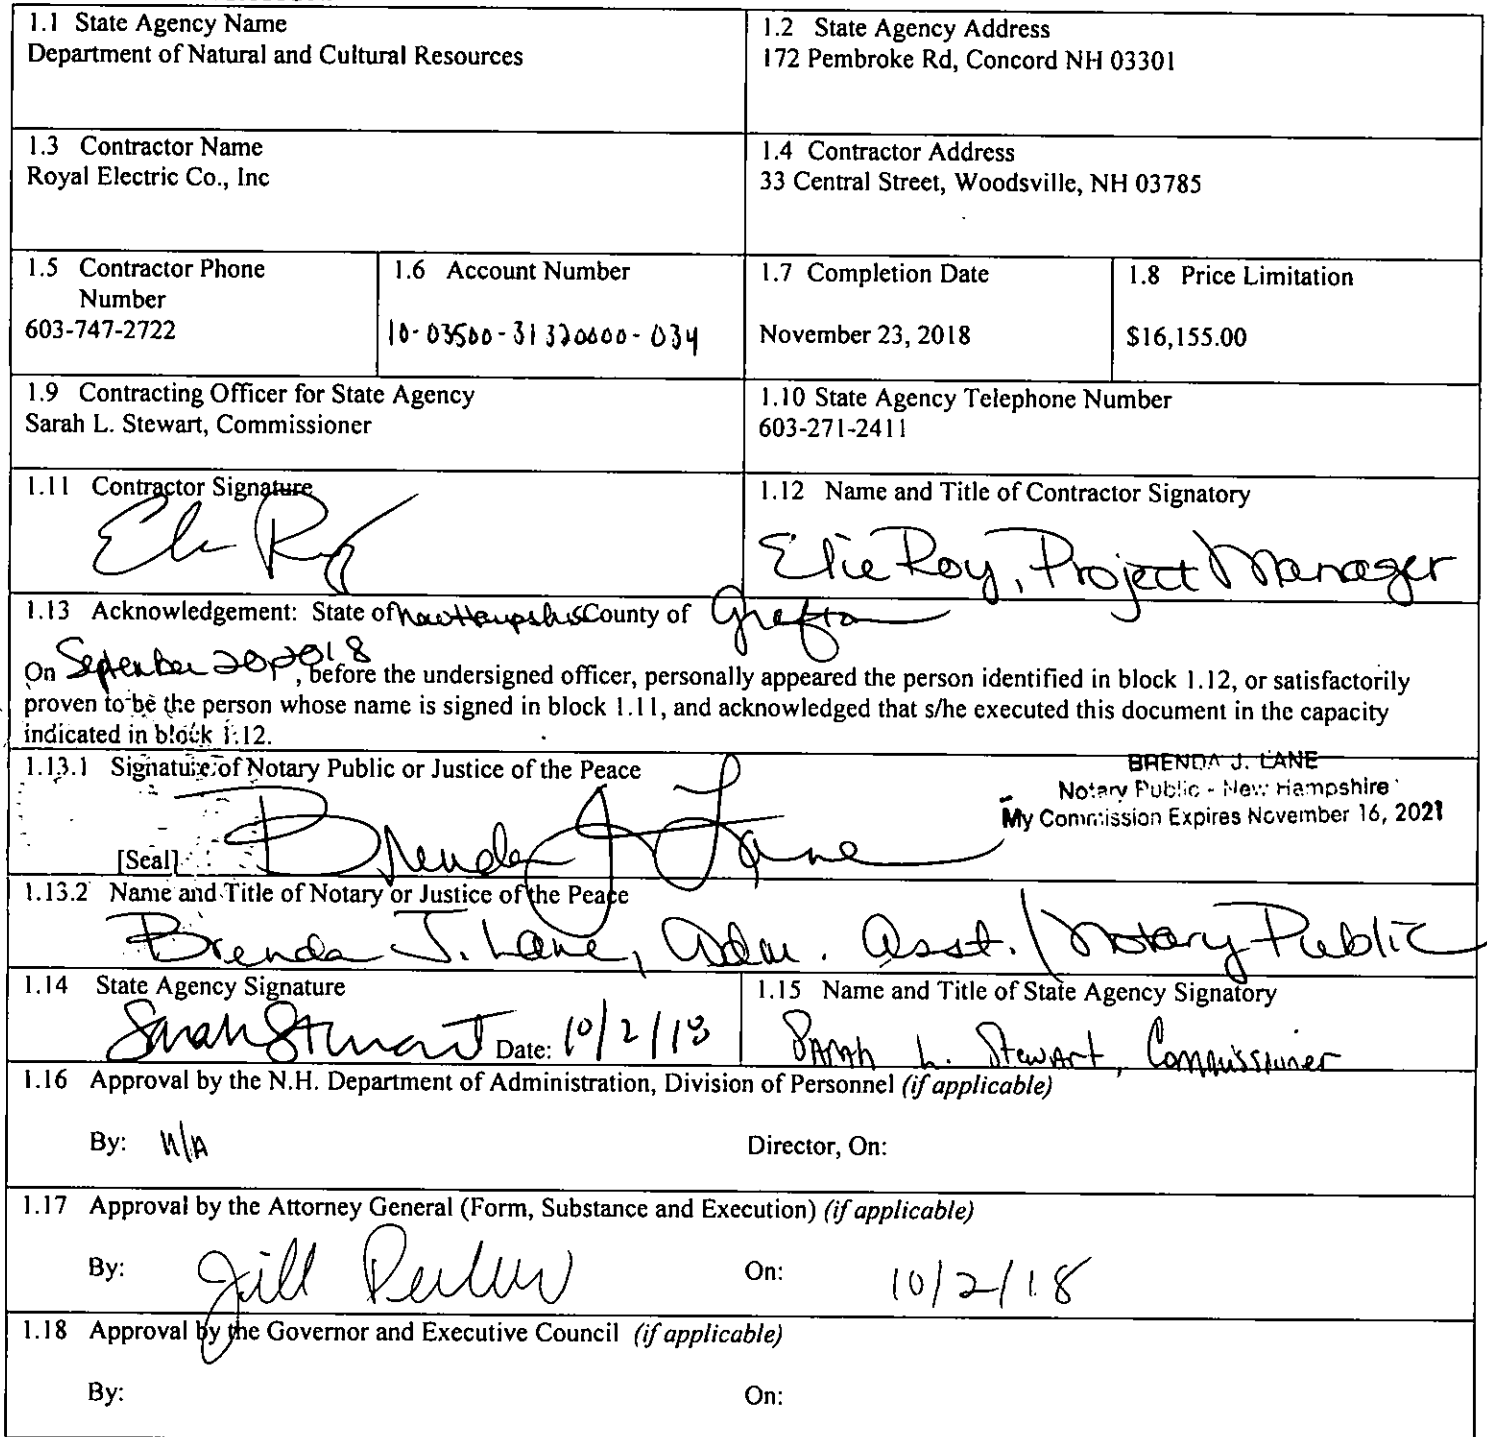 1.1 State Agency Name
Department of Natural and Cultural Resources
1.2 State Agency Address
172 Pembroke Rd, Concord NH 03301
1.3 Contractor Name
Royal Electric Co., Inc
1.4 Contractor Address
33 Central Street, Woodsville, NH 03785
1.5 Contractor Phone
Number
603-747-2722
1.6 Account Number
10-03500-31320000-034
1.7 Completion Date
November 23, 2018
1.8 Price Limitation
$16,155.00
1.9 Contracting Officer for State Agency
Sarah L. Stewart, Commissioner
1.10 State Agency Telephone Number
603-271-2411
1.11 Contractor Signature
1.12 Name and Title of Contractor Signatory
Elie Roy, Project Manager
1.13 Acknowledgement: State of New Hampshire County of Grafton
On September 20, 2018, before the undersigned officer, personally appeared the person identified in block 1.12, or satisfactorily
proven to be the person whose name is signed in block 1.11, and acknowledged that s/he executed this document in the capacity
indicated in block 1.12.
1.13.1 Signature of Notary Public or Justice of the Peace
BRENDA J. LANE
Notary Public - New Hampshire
My Commission Expires November 16, 2021
[Seal] Brenda J Lane
1.13.2 Name and Title of Notary or Justice of the Peace
Brenda J. Lane, Adm. Asst. / Notary Public
1.14 State Agency Signature
Sarah Stewart Date: 10/2/18
1.15 Name and Title of State Agency Signatory
Sarah L. Stewart, Commissioner
1.16 Approval by the N.H. Department of Administration, Division of Personnel (if applicable)
By: N/A Director, On:
1.17 Approval by the Attorney General (Form, Substance and Execution) (if applicable)
By: Jill On: 10/2/18
1.18 Approval by the Governor and Executive Council (if applicable)
By: On: